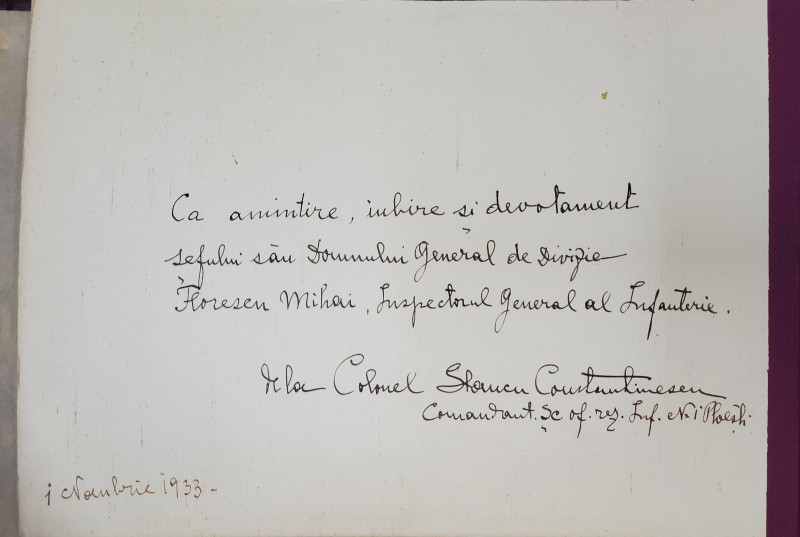 Ca amintire, iubire și devotament
șefului său Domnului General de Divizie
Florescu Mihai, Inspectorul General al Infanterie.
dela Colonel Stancu Constantinescu
Comandant. Șc of. rez. Inf. No 1 Ploești.
1 Noembrie 1933 -